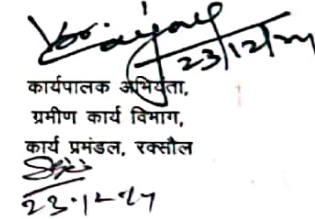 23/12/24
कार्यपालक अभियंता,
ग्रामीण कार्य विभाग,
कार्य प्रमंडल, रक्सौल
23.12.24